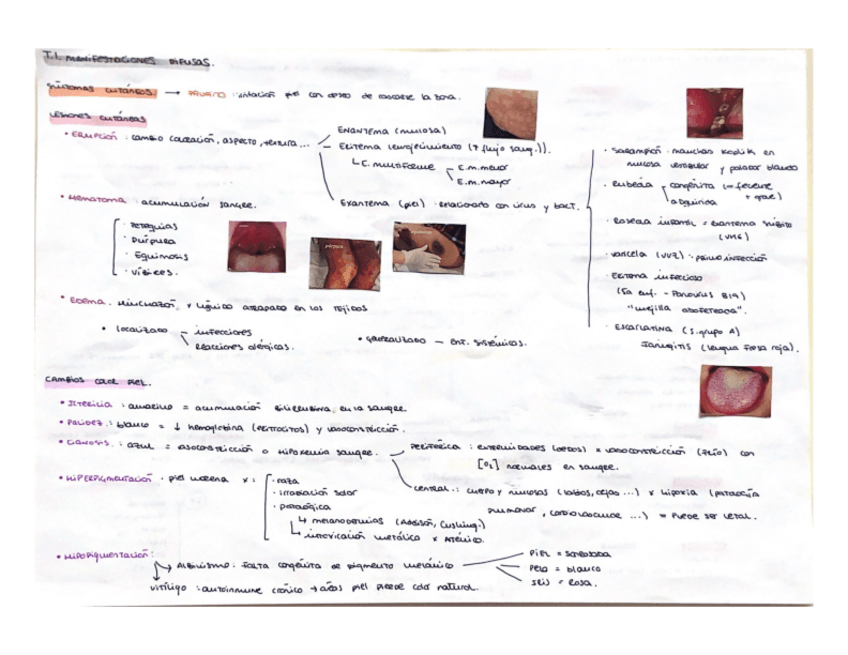 T.1. MANIFESTACIONES DIFUSAS.
SÍNTOMAS CUTÁNEOS. → PRURITO: irritación piel con deseo de rascarse la zona.
LESIONES CUTÁNEAS
• ERUPCIÓN: cambio coloración, aspecto, textura...
ENANTEMA (mucosa)
ERITEMA (enrojecimiento (↑ flujo sang.)).
↳ E. multiforme
E.m. menor
E.m. mayor
EXANTEMA (piel): relacionado con virus y bact.
• Sarampión: manchas Koplik en
mucosa vestibular y paladar blando
• Rubeola
congénita (- frecuente
+ grave)
adquirida
• Roseola infantil = exantema súbito
(VH6)
• varicela (VVZ): primoinfección
• Eritema infeccioso
(5a enf. - Parvovirus B19)
"mejilla abofeteada".
• Escarlatina (S. grupo A)
Faringitis (lengua fresa roja).
• Hematoma: acumulación sangre.
• Petequias
• Púrpura
• Equimosis
• Víbices.
púrpura
• Edema: hinchazón x líquido atrapado en los tejidos
• localizado
infecciones
reacciones alérgicas.
• generalizado — enf. sistémicas.
CAMBIOS COLOR PIEL.
• ICTERICIA: amarillo = acumulación bilirrubina, en la sangre.
• PALIDEZ: blanco = ↓ hemoglobina (eritrocitos) y vasoconstricción.
• CIANOSIS: azul = vasoconstricción o hipoxemia sangre.
PERIFÉRICA: extremidades (dedos) x vasoconstricción (frío) con
[O₂] normales en sangre.
CENTRAL: cuerpo y mucosas (labios, orejas ...) x hipoxia (patología
pulmonar, cardiovascular ...) = Puede ser letal.
• HIPERPIGMENTACIÓN: piel morena x:
• raza
• irradiación solar
• patológica
↳ melanodermias (Addison, Cushing.)
↳ intoxicación metálica x Arsénico.
• HIPOPIGMENTACIÓN:
Albinismo: falta congénita de pigmento melánico
PIEL = sonrosada
PELO = blanco
IRIS = rosa.
vitíligo: autoinmune crónico → áreas piel pierde color natural.